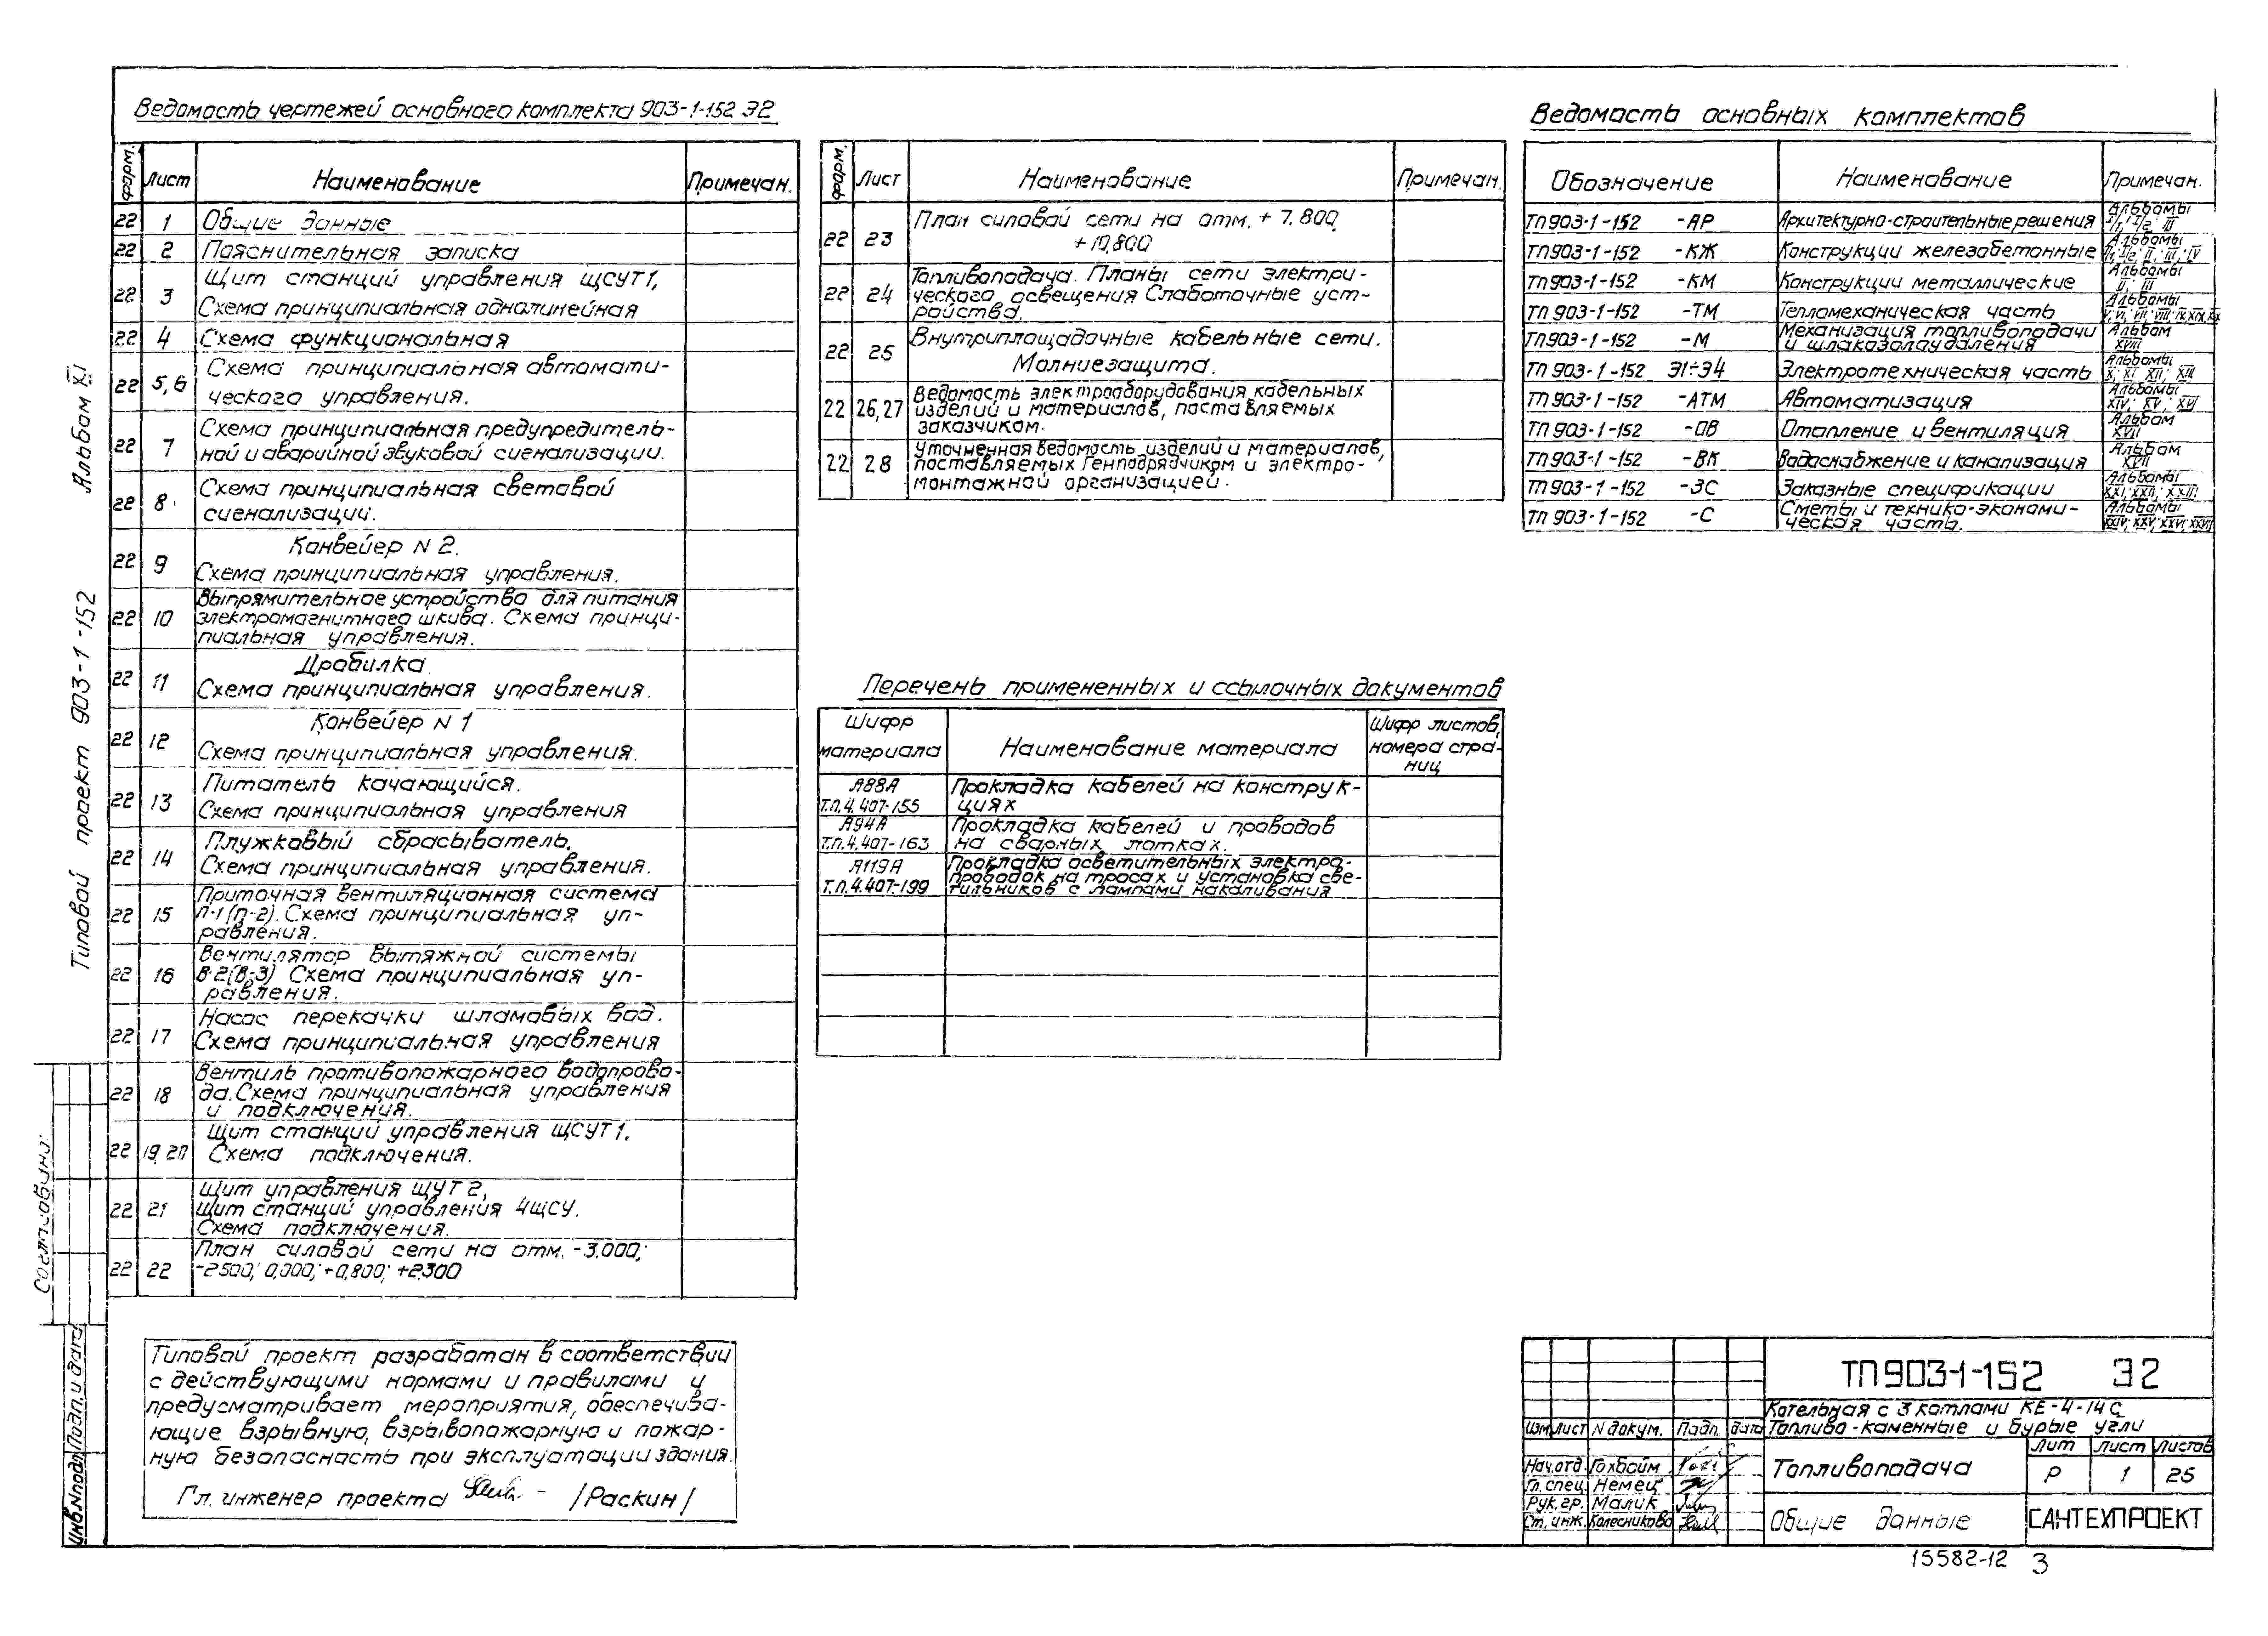 Ведомость чертежей основного комплекта 903-1-152 Э2
форм. Лист Наименование Примечан.
22 1 Общие данные
22 2 Пояснительная записка
22 3 Щит станций управления ЩСУТ1,
Схема принципиальная однолинейная
22 4 Схема функциональная
22 5,6 Схема принципиальная автомати-
ческого управления.
22 7 Схема принципиальная предупредитель-
ной и аварийной звуковой сигнализации.
22 8 Схема принципиальная световой
сигнализации.
22 9 Конвейер N 2.
Схема принципиальная управления.
22 10 Выпрямительное устройство для питания
электромагнитного шкива. Схема принци-
пиальная управления.
22 11 Дробилка
Схема принципиальная управления.
22 12 Конвейер N 1
Схема принципиальная управления.
22 13 Питатель качающийся.
Схема принципиальная управления
22 14 Плужковый сбрасыватель.
Схема принципиальная управления.
22 15 Приточная вентиляционная система
П-1(П-2). Схема принципиальная уп-
равления.
22 16 Вентилятор вытяжной системы
В-2(В-3) Схема принципиальная уп-
равления.
22 17 Насос перекачки шламовых вод.
Схема принципиальная управления
22 18 Вентиль противопожарного водопрово-
да. Схема принципиальная управления
и подключения.
22 19,20 Щит станций управления ЩСУТ1.
Схема подключения.
22 21 Щит управления ЩУТ2,
Щит станций управления 4ЩСУ.
Схема подключения.
22 22 План силовой сети на отм. -3.000;
-2500; 0,000; +0,800; +2300
форм. Лист Наименование Примечан.
22 23 План силовой сети на отм. + 7.800,
+10,800
22 24 Топливоподача. Планы сети электри-
ческого освещения Слаботочные уст-
ройства.
22 25 Внутриплощадочные кабельные сети.
Молниезащита.
22 26,27 Ведомость электрооборудования, кабельных
изделий и материалов, поставляемых
заказчиком.
22 28 Уточненная ведомость изделий и материалов,
поставляемых Генподрядчиком и электро-
монтажной организацией.
Перечень примененных и ссылочных документов
Шифр материала Наименование материала Шифр листов, номера стра-
ниц
А88А Прокладка кабелей на конструк-
Т.П.4.407-155 циях
А94А Прокладка кабелей и проводов
Т.П.4.407-163 на сварных лотках.
А119А Прокладка осветительных электро-
проводок на тросах и установка све-
Т.П.4.407-199 тильников с лампами накаливания
Ведомость основных комплектов
Обозначение Наименование Примечан.
ТП903-1-152 -АР Архитектурно-строительные решения Альбомы
ТП903-1-152 -КЖ Конструкции железобетонные Альбомы
ТП903-1-152 -КМ Конструкции металлические Альбомы II; III
ТП903-1-152 -ТМ Тепломеханическая часть Альбомы
ТП903-1-152 -М Механизация топливоподачи
и шлакозолоудаления Альбом XVIII
ТП903-1-152 Э1÷Э4 Электротехническая часть Альбомы X; XI XII; XIII
ТП903-1-152 -АТМ Автоматизация Альбомы XIV; XV; XVI
ТП903-1-152 -ОВ Отопление и вентиляция Альбом XVII
ТП903-1-152 -ВК Водоснабжение и канализация Альбом XVII
ТП903-1-152 -ЗС Заказные спецификации Альбомы XXI; XXII; XXIII
ТП903-1-152 -С Сметы и технико-экономи-
ческая часть. Альбомы XXIV; XXV; XXVI; XXVII
Типовой проект 903-1-152 Альбом XI
Согласовано:
Инв.Nподл. Подп. и дата
Типовой проект разработан в соответствии
с действующими нормами и правилами и
предусматривает мероприятия, обеспечива-
ющие взрывную, взрывопожарную и пожар-
ную безопасность при эксплуатации здания.
Гл. инженер проекта /Раскин/
ТП903-1-152 Э2
Котельная с 3 котлами КЕ-4-14С
Топливо-каменные и бурые угли
Изм Лист N докум. Подп. Дата
Нач.отд. Гохбойм
Гл.спец. Немец
Рук.гр. Малик
Ст.инж. Колесникова
Топливоподача
Лит Лист Листов
Р 1 25
Общие данные
САНТЕХПРОЕКТ
15582-12 3